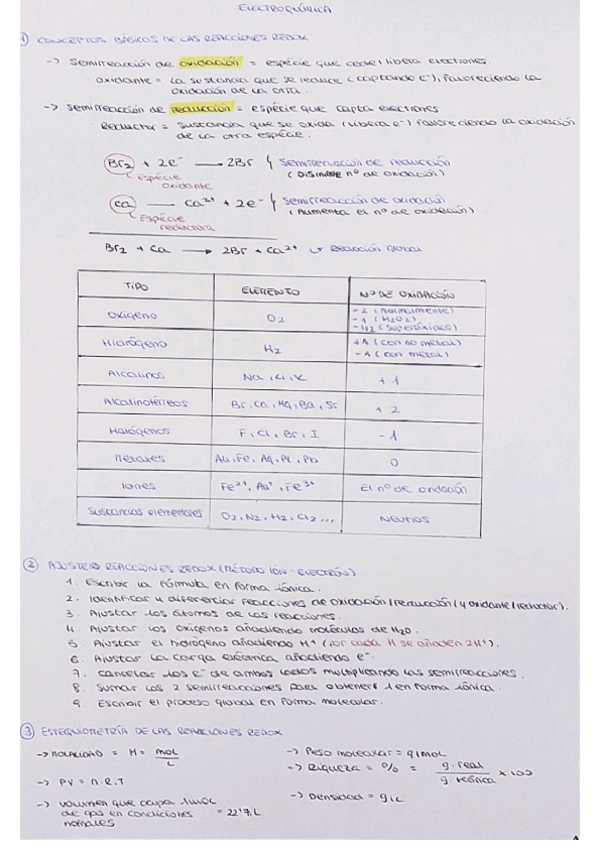 ELECTROQUÍMICA
1) CONCEPTOS BÁSICOS DE LAS REACCIONES REDOX
-> Semirreacción de oxidación = espécie que cede/libera electrones.
· Oxidante = La sustancia que se reduce (captando e⁻), favoreciendo la
oxidación de la otra.
-> Semirreacción de reducción = espécie que capta electrones
· Reductor = Sustancia que se oxida (libera e⁻) favoreciendo la oxidación
de la otra espécie.
Br₂ + 2e⁻ → 2Br } Semirreacción de reducción
Espécie (Disminuye nº de oxidación)
oxidante
Ca → Ca²⁺ + 2e⁻ } Semirreacción de oxidación
Espécie (Aumenta el nº de oxidación)
reductora
Br₂ + Ca → 2Br + Ca²⁺ Reacción global
TIPO ELEMENTO Nº DE OXIDACIÓN
Oxígeno O₂ -2 (normalmente)
-1 (H₂O₂)
-1/2 (superóxidos)
Hidrógeno H₂ +1 (con no metal)
-1 (con metal)
Alcalinos Na, Li, K +1
Alcalinotérreos Br, Ca, Mg, Ba, Sr +2
Halógenos F, Cl, Br, I -1
Metales Au, Fe, Ag, Pt, Pb 0
Iones Fe²⁺, Au⁺, Fe³⁺ El nº de oxidación
Sustancias elementales O₂, N₂, H₂, Cl₂ ... Neutros
2) AJUSTE REACCIONES REDOX (MÉTODO IÓN-ELECTRÓN)
1. Escribir la fórmula en forma iónica.
2. Identificar y diferenciar reacciones de oxidación/reducción (y oxidante/reductor).
3. Ajustar los átomos de las reacciones.
4. Ajustar los oxígenos añadiendo moléculas de H₂O.
5. Ajustar el hidrógeno añadiendo H⁺ (por cada H se añaden 2H⁺).
6. Ajustar la carga eléctrica añadiendo e⁻.
7. Cancelar los e⁻ de ambos lados multiplicando las semirreacciones.
8. Sumar las 2 semirreacciones para obtener 1 en forma iónica.
9. Escribir el proceso global en forma molecular.
3) ESTEQUIOMETRÍA DE LAS REACCIONES REDOX
-> MOLARIDAD = M = mol/L
-> Peso molecular = g/mol
-> Riqueza = % = g. real / g. teórica × 100
-> PV = n.R.T
-> Densidad = g/L
-> Volumen que ocupa 1mol
de gas en condiciones = 22'7 L
normales